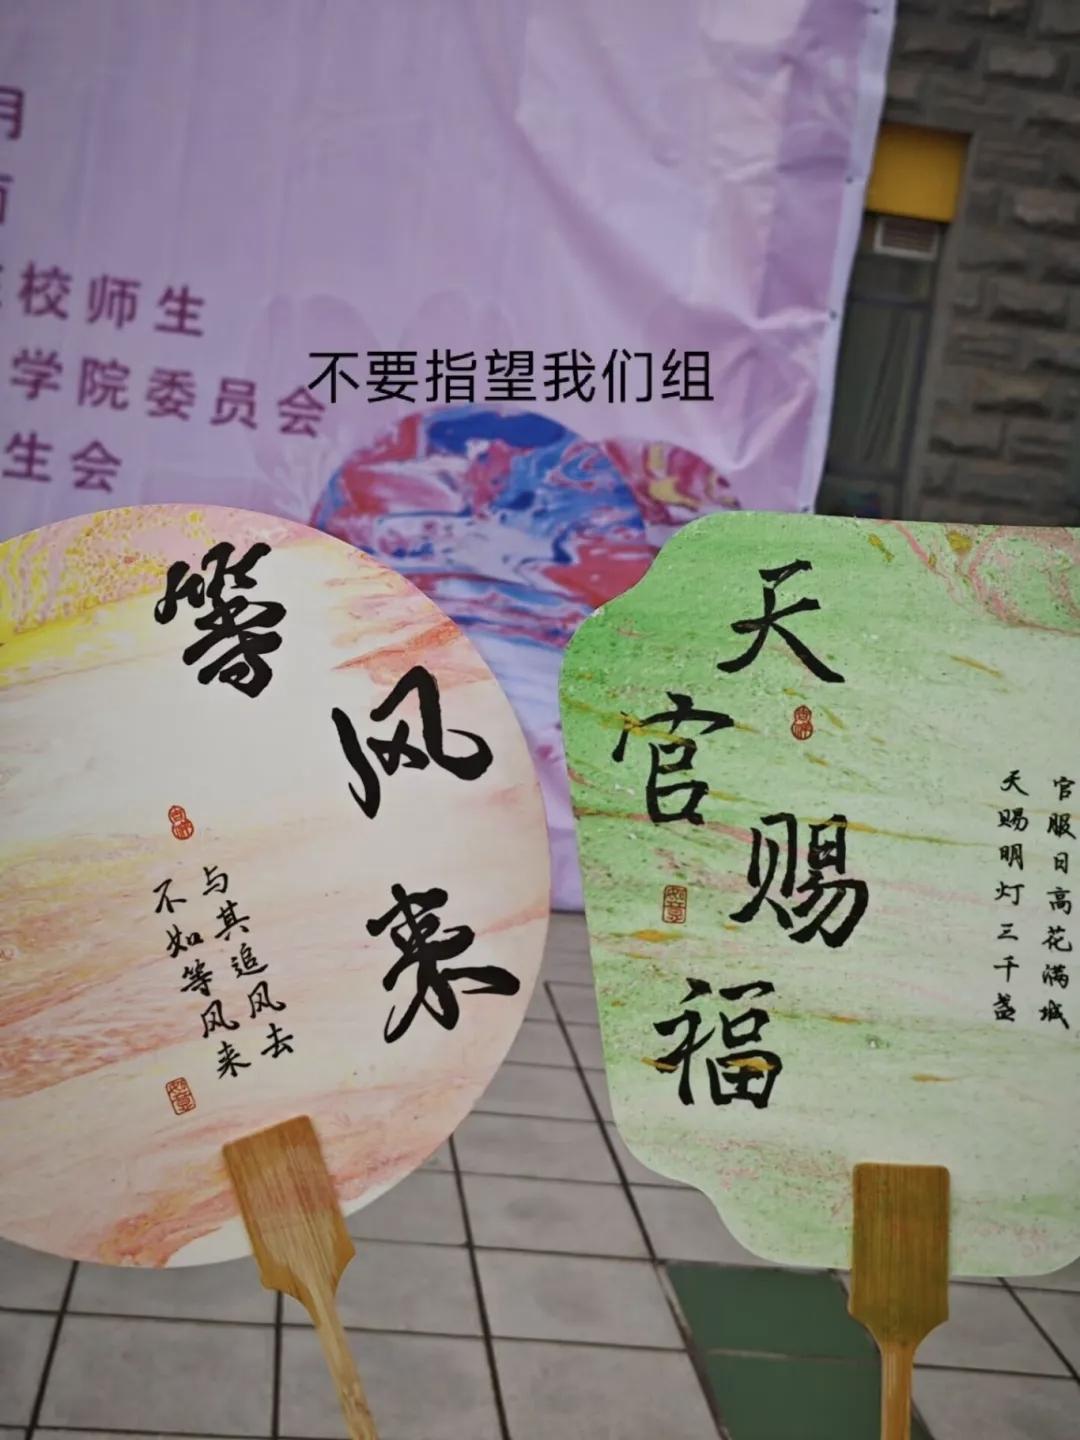 校师生
学院委员会
生会
不要指望我们组
等风来
与其追风去
不如等风来
天官赐福
官服日高花满城
天赐明灯三千盏